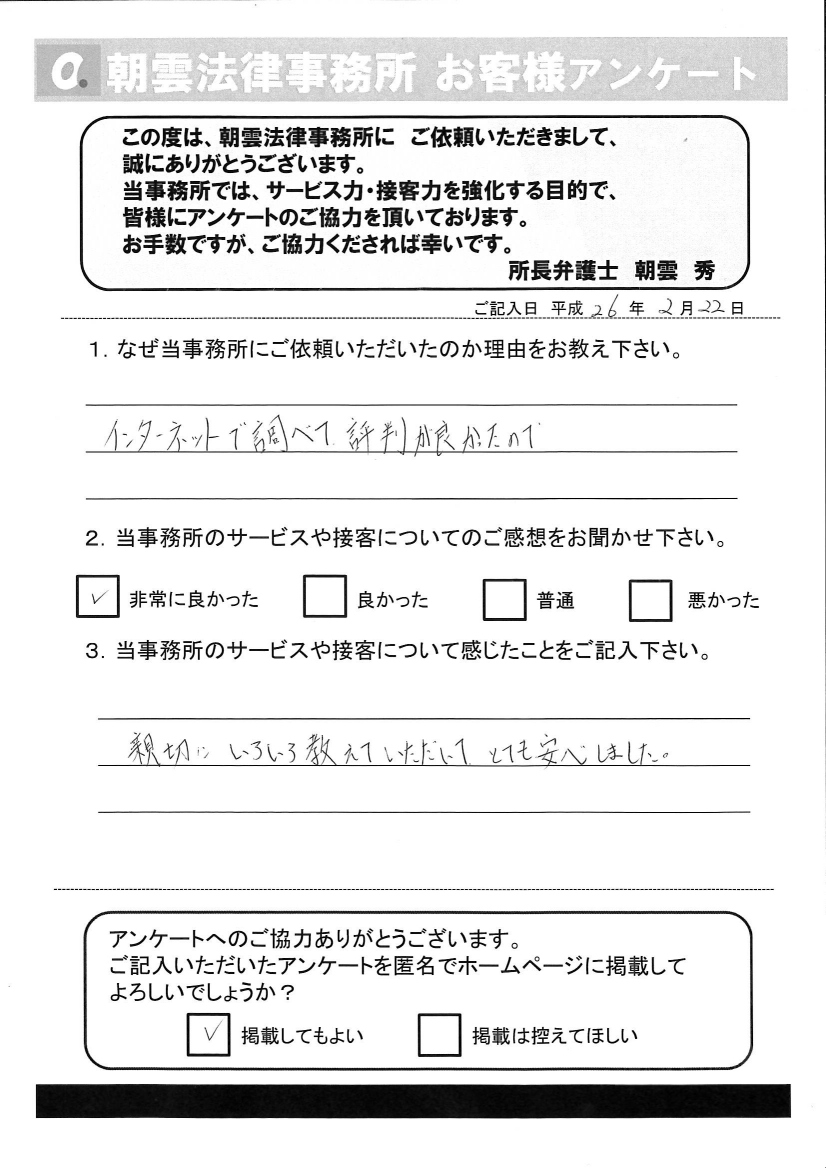 a. 朝雲法律事務所 お客様アンケート
この度は、朝雲法律事務所に ご依頼いただきまして、
誠にありがとうございます。
当事務所では、サービス力・接客力を強化する目的で、
皆様にアンケートのご協力を頂いております。
お手数ですが、ご協力くだされば幸いです。
所長弁護士 朝雲 秀
ご記入日 平成 26 年 2 月 22 日
1. なぜ当事務所にご依頼いただいたのか理由をお教え下さい。
インターネットで調べて 評判が良かったので
2. 当事務所のサービスや接客についてのご感想をお聞かせ下さい。
✓ 非常に良かった 良かった 普通 悪かった
3. 当事務所のサービスや接客について感じたことをご記入下さい。
親切に いろいろ教えていただいて とても安心しました。
アンケートへのご協力ありがとうございます。
ご記入いただいたアンケートを匿名でホームページに掲載して
よろしいでしょうか？
✓ 掲載してもよい 掲載は控えてほしい